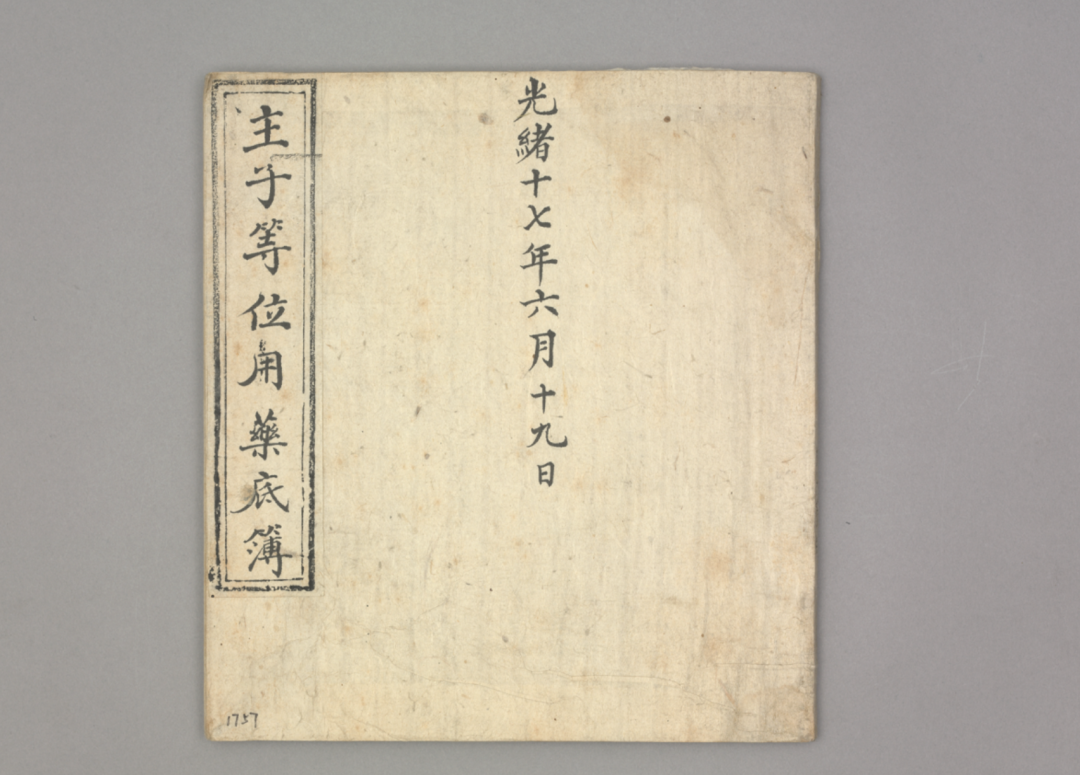 光緒十七年六月十九日
主子等位用藥底簿
1757